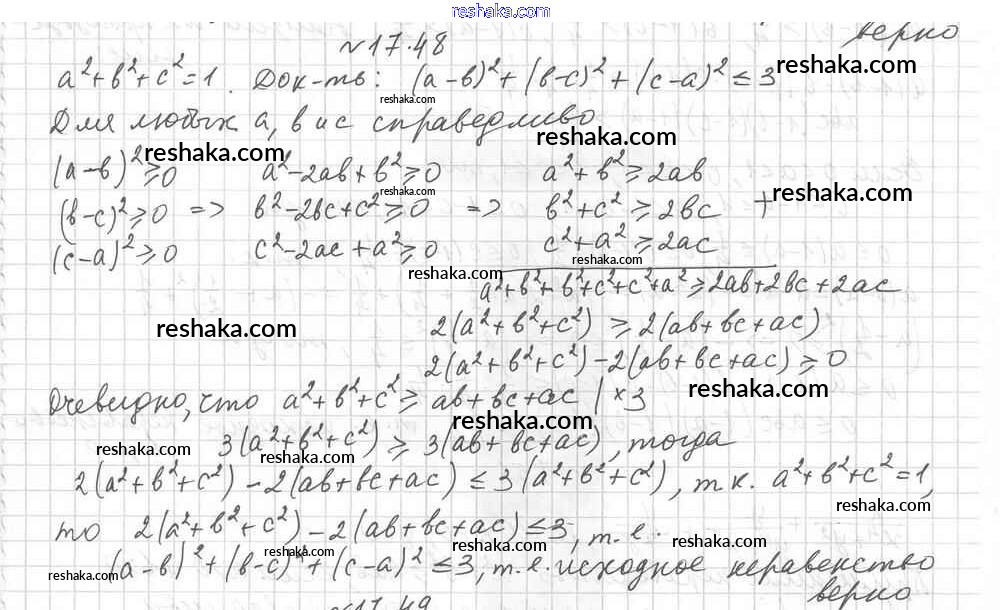 reshaka.com
верно
№17.48
a²+b²+c²=1. Док-ть: (a-b)²+(b-c)²+(c-a)²≤3
reshaka.com
reshaka.com
Для любых a, b и c справедливо
reshaka.com
reshaka.com
(a-b)²≥0 a²-2ab+b²≥0 a²+b²≥2ab
reshaka.com
reshaka.com
(b-c)²≥0 => b²-2bc+c²≥0 => b²+c²≥2bc +
(c-a)²≥0 c²-2ac+a²≥0 c²+a²≥2ac
reshaka.com
reshaka.com
a²+b²+b²+c²+c²+a²≥2ab+2bc+2ac
reshaka.com
2(a²+b²+c²)≥2(ab+bc+ac)
2(a²+b²+c²)-2(ab+bc+ac)≥0
reshaka.com
Очевидно, что a²+b²+c²≥ab+bc+ac |×3
reshaka.com
3(a²+b²+c²)≥3(ab+bc+ac), тогда
reshaka.com
reshaka.com
2(a²+b²+c²)-2(ab+bc+ac)≤3(a²+b²+c²), т.к. a²+b²+c²=1,
reshaka.com
то 2(a²+b²+c²)-2(ab+bc+ac)≤3, т.е.
reshaka.com
reshaka.com
reshaka.com
(a-b)²+(b-c)²+(c-a)²≤3, т.е. исходное неравенство
reshaka.com
reshaka.com
верно
№17.49